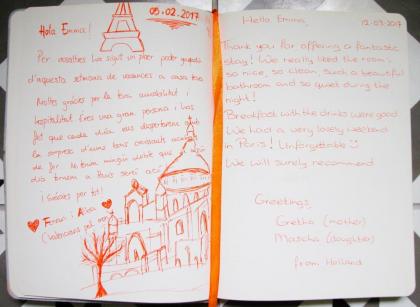 05.02.2017
Hola Emma!
Per nosaltres ha sigut un plaer poder gaudir
d'aquesta setmana de vacances a casa teva
Moltes gràcies per la teva amabilitat i
hospitalitat. Eres una gran persona i has
fet que cada dia ens despertàrem amb
la sorpresa d'uns bons croissants acabats
de fer. No tenim ningún dubte que si algún
dia tornem a París serà així
¡Gràcies per tot!
Ferran i Alba
(Valencians pel món)
Hello Emma, 12-03-2017
Thank you for offering a fantastic
stay! We really liked the room:
so nice, so clean, such a beautiful
bathroom and so quiet during the
night!
Breakfast with the drinks were good.
We had a very lovely weekend
in Paris! Unforgettable
We will surely recommend
Greetings,
Gretha (mother)
Mascha (daughter)
from Holland